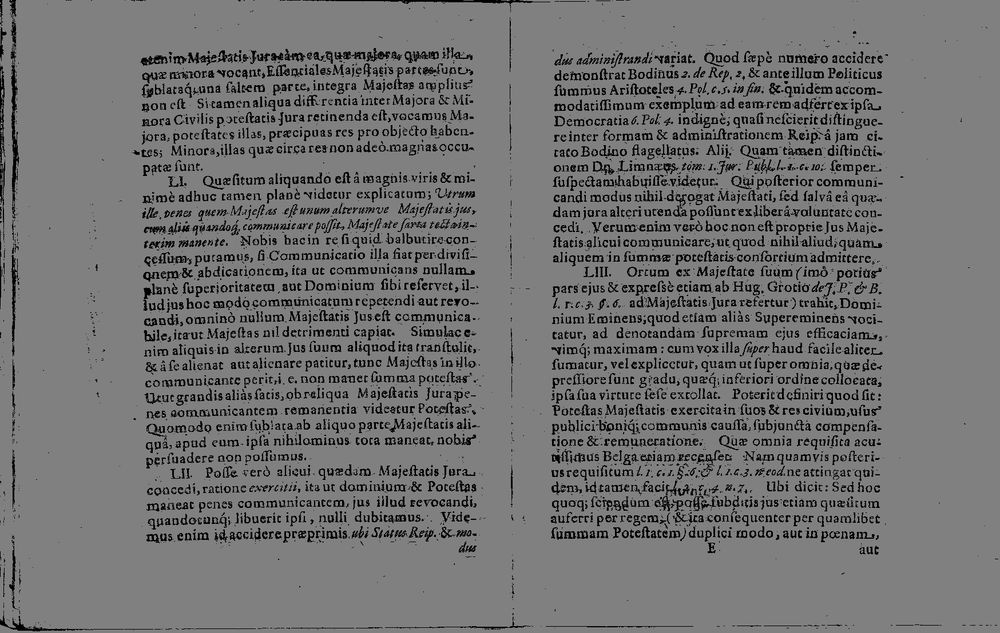 etenim Majeſtatis Jura tàm ea, quæ majora, quam illa
quæ minora vocant, Eſſentiales Majeſtatis partes ſunt,
ſublataq; una ſaltem parte, integra Majeſtas amplius
non eſt Si tamen aliqua differentia inter Majora & Mi-
nora Civilis poteſtatis Jura retinenda eſt, vocamus Ma-
jora, poteſtates illas, præcipuas res pro objecto haben-
tes; Minora, illas quæ circa res non adeò magnas occu-
patæ ſunt.
LI. Quæſitum aliquando eſt â magnis viris & mi-
nimè adhuc tamen planè videtur explicatum; Utrum
ille, penes quem Majeſtas eſt unum alterumve Majeſtatis jus,
cum aliis quandoq; communicare poſſit, Majeſtate ſarta tecta in-
terim manente. Nobis hac in re ſi quid balbutire con-
ceſſum, putamus, ſi Communicatio illa fiat per diviſi-
onem & abdicationem, ita ut communicans nullam
planè ſuperioritatem aut Dominium ſibi reſervet, il-
lud jus hoc modo communicatum repetendi aut revo-
candi, omninò nullum Majeſtatis Jus eſt communica-
bile, ita ut Majeſtas nil detrimenti capiat. Simulac e-
nim aliquis in alterum Jus ſuum aliquod ita tranſtulit,
& â ſe alienat aut alienare patitur, tunc Majeſtas in illo
communicante perit, i. e. non manet ſumma poteſtas.
Utut grandis aliàs ſatis, ob reliqua Majeſtatis Jura pe-
nes communicantem remanentia videatur Poteſtas.
Quomodo enim ſublata ab aliquo parte Majeſtatis ali-
quâ, apud eum ipſa nihilominus tota maneat, nobis
perſuadere non poſſumus.
LII. Poſſe verò alicui quædam Majeſtatis Jura
concedi, ratione exercitii, ita ut dominium & Poteſtas
maneat penes communicantem, jus illud revocandi,
quandocunq; libuerit ipſi, nulli dubitamus. Vide-
mus enim id accidere præprimis ubi Status Reip. & mo-
dus
dus adminiſtrandi variat. Quod ſæpè numero accidere
demonſtrat Bodinus 2. de Rep. 2, & ante illum Politicus
ſummus Ariſtoteles 4. Pol. c. 5. in fin. & quidem accom-
modatiſſimum exemplum ad eam rem adfert ex ipſa
Democratia 6. Pol. 4. indignè; quaſi neſcierit diſtingue-
re inter formam & adminiſtrationem Reip. â jam ci-
tato Bodino flagellatus. Alij. Quam tamen diſtincti-
onem Dn. Limnæus, tom: 1. Jur. Publ. l. 1. c. 10. ſemper
ſuſpectam habuiſſe videtur. Qui poſterior communi-
candi modus nihil derogat Majeſtati, ſed ſalvâ eâ quæ-
dam jura alteri utenda poſſunt ex liberâ voluntate con-
cedi. Verum enim verò hoc non eſt propriè Jus Maje-
ſtatis alicui communicare, ut quod nihil aliud, quam
aliquem in ſummæ poteſtatis conſortium admittere.
LIII. Ortum ex Majeſtate ſuum (imò potius
pars ejus & expreſsè etiam ab Hug. Grotio de J. P. & B.
l. 1. c. 3. §. 6. ad Majeſtatis Jura refertur) trahit, Domi-
nium Eminens; quod etiam aliàs Supereminens voci-
tatur, ad denotandam ſupremam ejus efficaciam,
vimq; maximam: cum vox illa ſuper haud facile aliter
ſumatur, vel explicetur, quam ut ſuper omnia, quæ de-
preſſiore ſunt gradu, quæq; inferiori ordine collocata,
ipſa ſua virtute ſeſe extollat. Poterit definiri quod ſit:
Poteſtas Majeſtatis exercita in ſuos & res civium, uſus
publici boniq; communis cauſſa, ſubjunctâ compenſa-
tione & remuneratione. Quæ omnia requiſita acu-
tiſſimus Belga etiam recenſet. Nam quamvis poſteri-
us requiſitum l. 1. c. 1. §. 6. & l. 1. c. 3. n. eod. ne attingat qui-
dem, id tamen facit c. 4. n. 7. Ubi dicit: Sed hoc
quoq; ſciendum eſt, poſſe ſubditis jus etiam quæſitum
auferri per regem, (& ita conſequenter per quamlibet
ſummam Poteſtatem) duplici modo, aut in pœnam,
E
aut